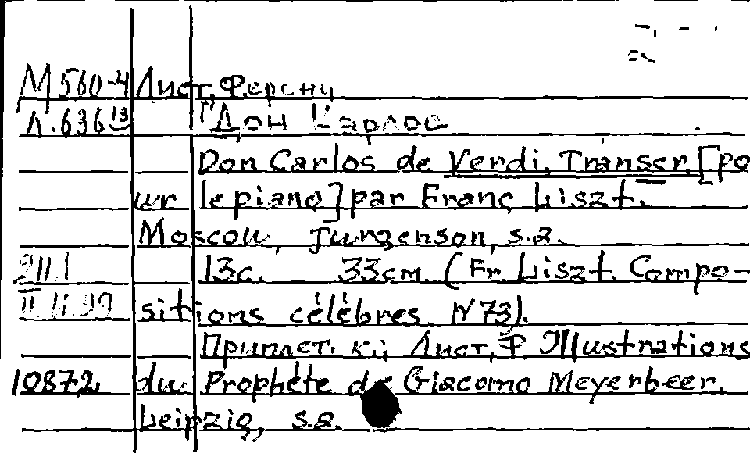 М560-4 Лист, Ференц
Л.636 13 "Дон Карлос
Don Carlos de Verdi. Transcr. [po
ur le piano] par Franç Liszt.
Moscou, Jurgenson, s.a.
13с. 33см. (Fr. Liszt. Compo-
sitions célèbres N73).
Приплет. к: Лист, Ф. Illustrations
10872 du Prophète de Giacomo Meyerbeer.
Leipzig, s.a.